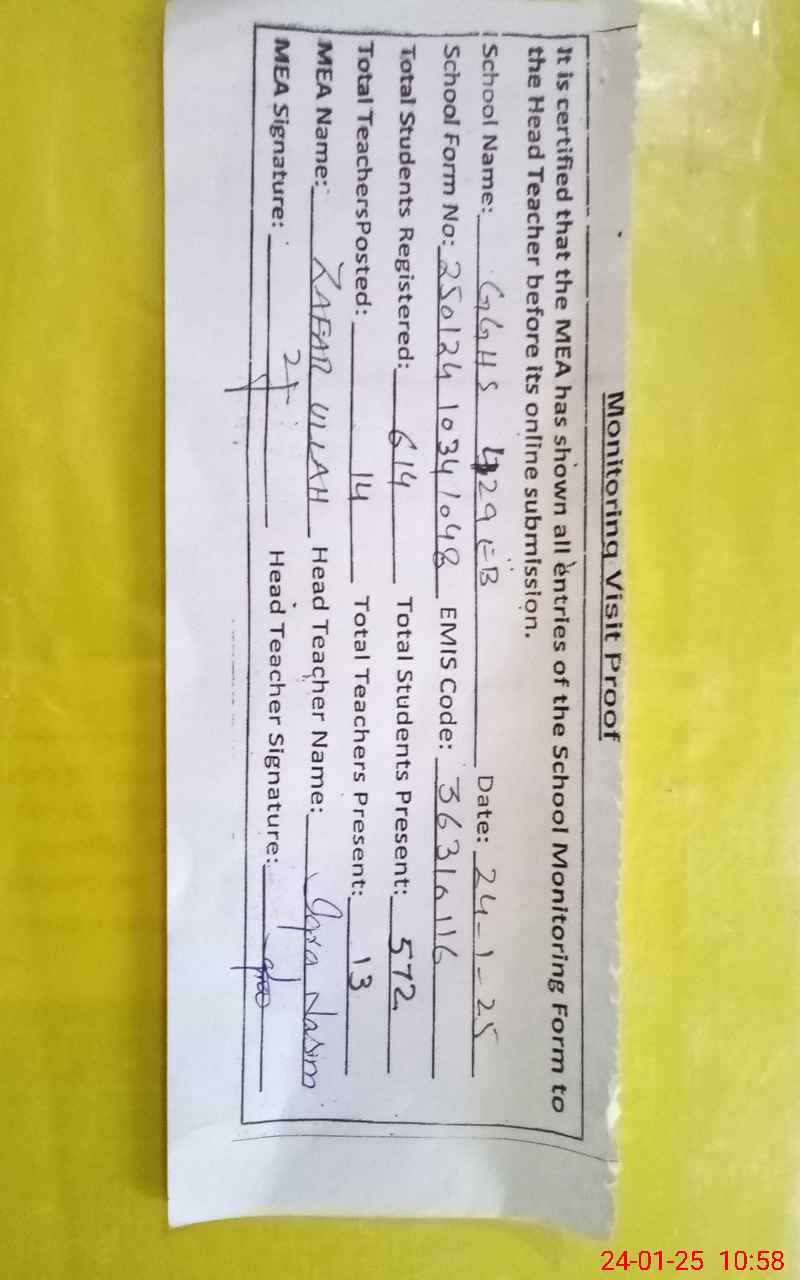 Monitoring Visit Proof
It is certified that the MEA has shown all entries of the School Monitoring Form to
the Head Teacher before its online submission.
School Name: GGHS 429 EB Date: 24-1-25
School Form No: 250124 10341048 EMIS Code: 36310116
Total Students Registered: 614 Total Students Present: 572
Total TeachersPosted: 14 Total Teachers Present: 13
MEA Name: ZAFAR ULLAH Head Teacher Name: Iqra Nasim
MEA Signature: Head Teacher Signature:
24-01-25 10:58